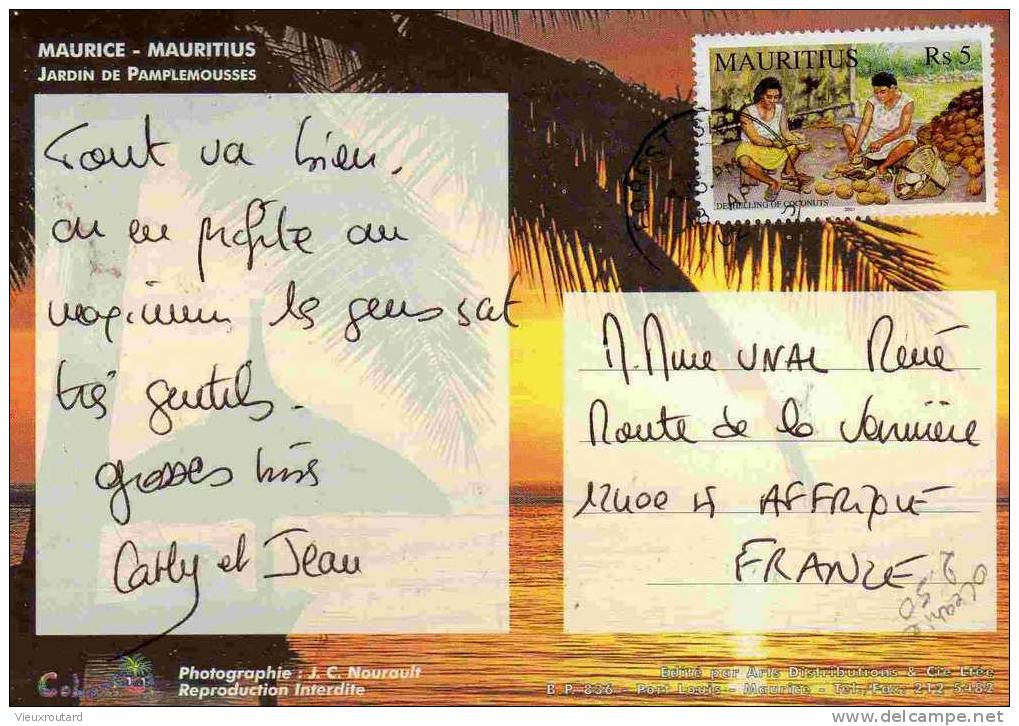 MAURICE - MAURITIUS
JARDIN DE PAMPLEMOUSSES
MAURITIUS Rs 5
DESHELLING OF COCONUTS
FOREST
Tout va bien,
on en profite au
maximum les gens sont
très gentils.
grosses bises
Cathy et Jean
M. Mme VNAL René
Route de la Verrière
12400 St AFFRIQUE
FRANCE
Océane
2.50
Photographie : J. C. Nourault
Reproduction Interdite
Edité par Arts Distributions & Cie Ltée
B.P. 836 - Port Louis - Maurice - Tel./Fax: 212 5482
Vieuxroutard
www.delcampe.net